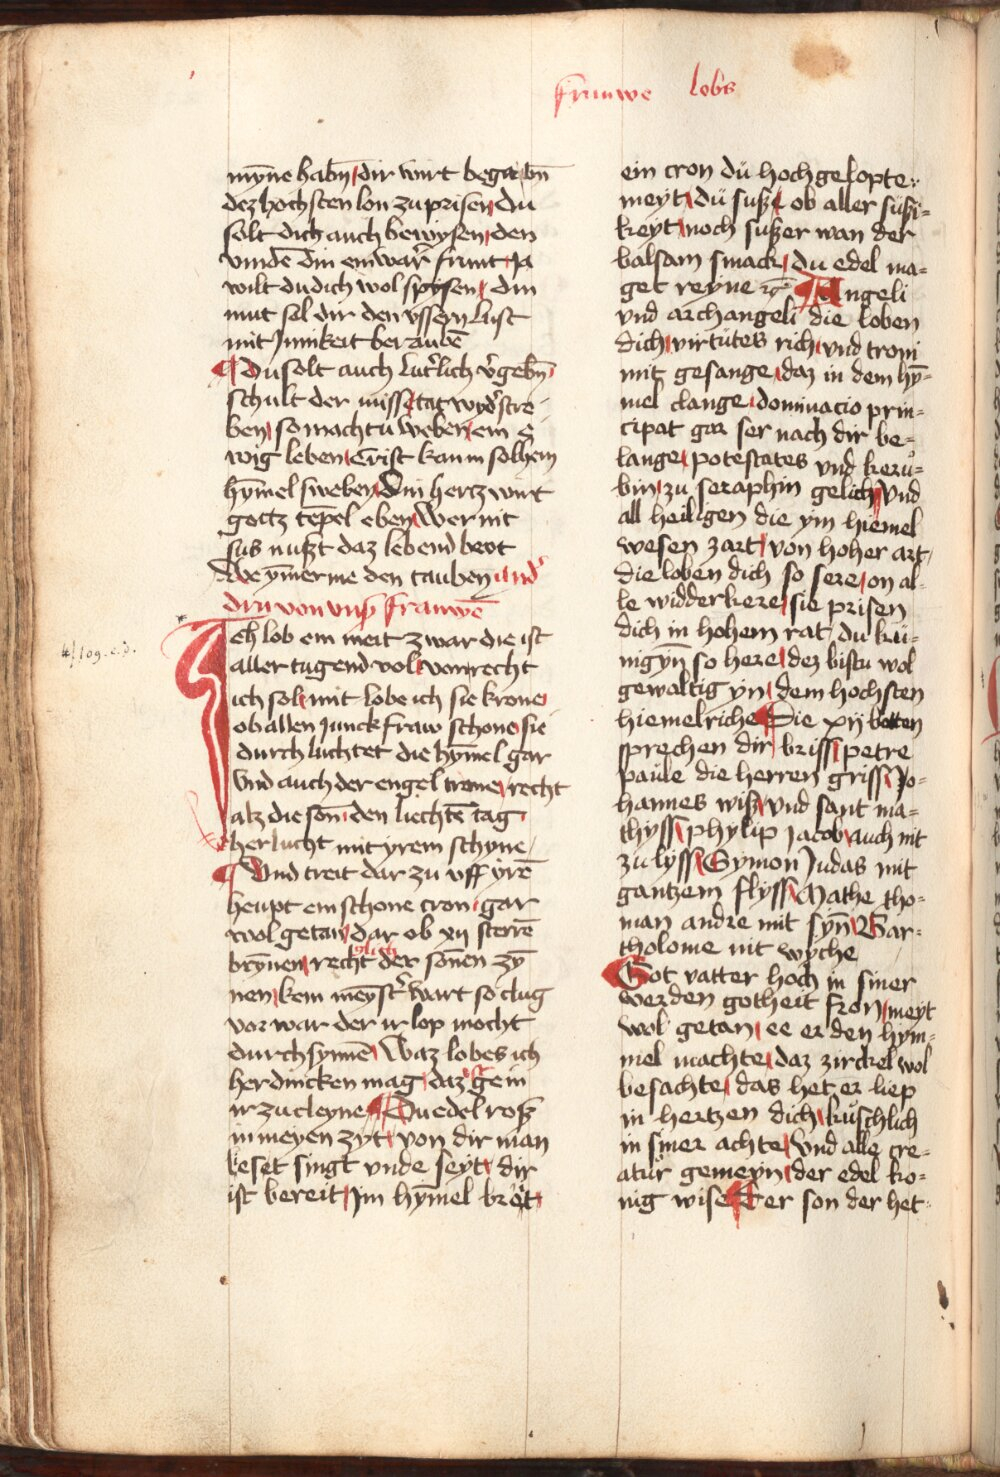 frauwe lobs
mȳne habn̄ dir wirt begabn̄
dez hochsten lon zu prisen du
solt dich auch bewysen den
vinde din einwar frunt Ja
wilt du dich wol spysen din
mut sol dir den vssern lust
mit Jnnikeit berauben̄
Du solt auch lut'lich v'gebn̄
schult der missetat wyd'stre-
ben so machtu weben ein e-
wig leben Crist kam solhem
hȳmel sweben Din hertz wirt
gottz tēpel eben Wer nit
sus nußt daz lebend brot
Die ȳmerme den tauben and'
dry von vnß frauwē
Ich lob ein meit zwar die ist
aller tugend vol von recht
ich sol mit lobe ich sie krone
ob allen Junckfraw schone sie
durch luchtet die hȳmel gar
Vnd auch der engel trone recht
alz die son den liechtē tag
herlucht mit yrem schyne
Vnd treit dar zu vff yrē
heupt ein schone cron gar
wol getan dar ob xij sterrē
brȳnen recht der sōnen zy
nen kein meyst' wart so clug
vor war der ir lop mocht
durch synnē Waz lobes ich
herdincken mag daz ist gein
ir zu cleyne Du edel roß
in meyen zyt von dir man
leset singt vnde seyt dir
ist bereit Jm hȳmel breit
4/109. c. d.
ein cron dü hochgelopte
meyt dü suße ob aller süßi-
keyt noch sußer wan der
balsam smack du edel ma-
get reyne etc Angeli
vnd archangeli die loben
dich virtutes rich vnd troni
mit gesange daz in dem hȳ-
mel clange dominacio prin-
cipat gar ser nach dir be-
lange potestates vnd keru-
bin zu seraphin gelich Vnd
all heiligen die ym hiemel
wesen zart von hoher art
die loben dich so sere on al-
le widderkere sie prisen
dich in hohem rat du kü-
nigyn̄ so here dez bistu wol
gewaltig yn dem hochsten
hiemelriche Die xij botten
sprechen dir briss petre
paule die herren griss Jo-
hannes wiß vnd sant ma-
thyss phylip Jacob auch mit
zu lyss Symon Judas mit
gantzem flyss Mathe tho-
man andre mit syn̄ Bar-
tholome nit wyche
Got vatter hoch in siner
werden gotheit fron meyt
wol getan ee er den hym-
mel machte daz zirckel wol
besachte das het er liep
in hertzen dich kuschlich
in siner achte Vnd alle cre-
atur gemeyn der edel ko-
nig wise Der son der het